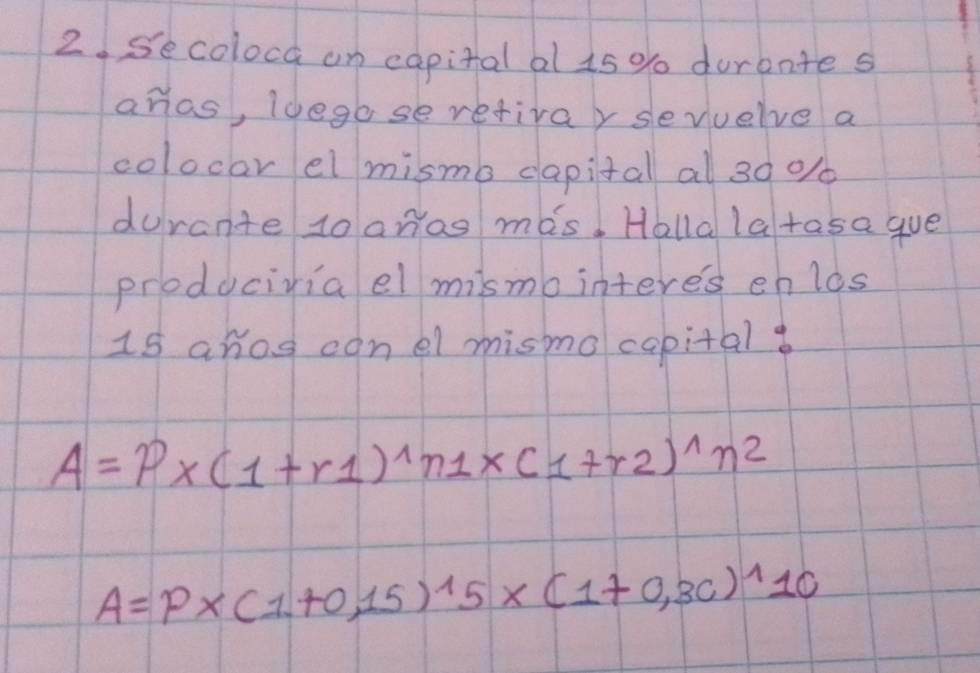 2. Se coloca un capital al 15% durante 5
años, luego se retira y se vuelve a
colocar el mismo capital al 30%
durante 10 años más. Halla la tasa que
produciría el mismo interés en los
15 años con el mismo capital:
A = P x (1 + r1)^n1 x (1 + r2)^n2
A = P x (1 + 0,15)^5 x (1 + 0,30)^10